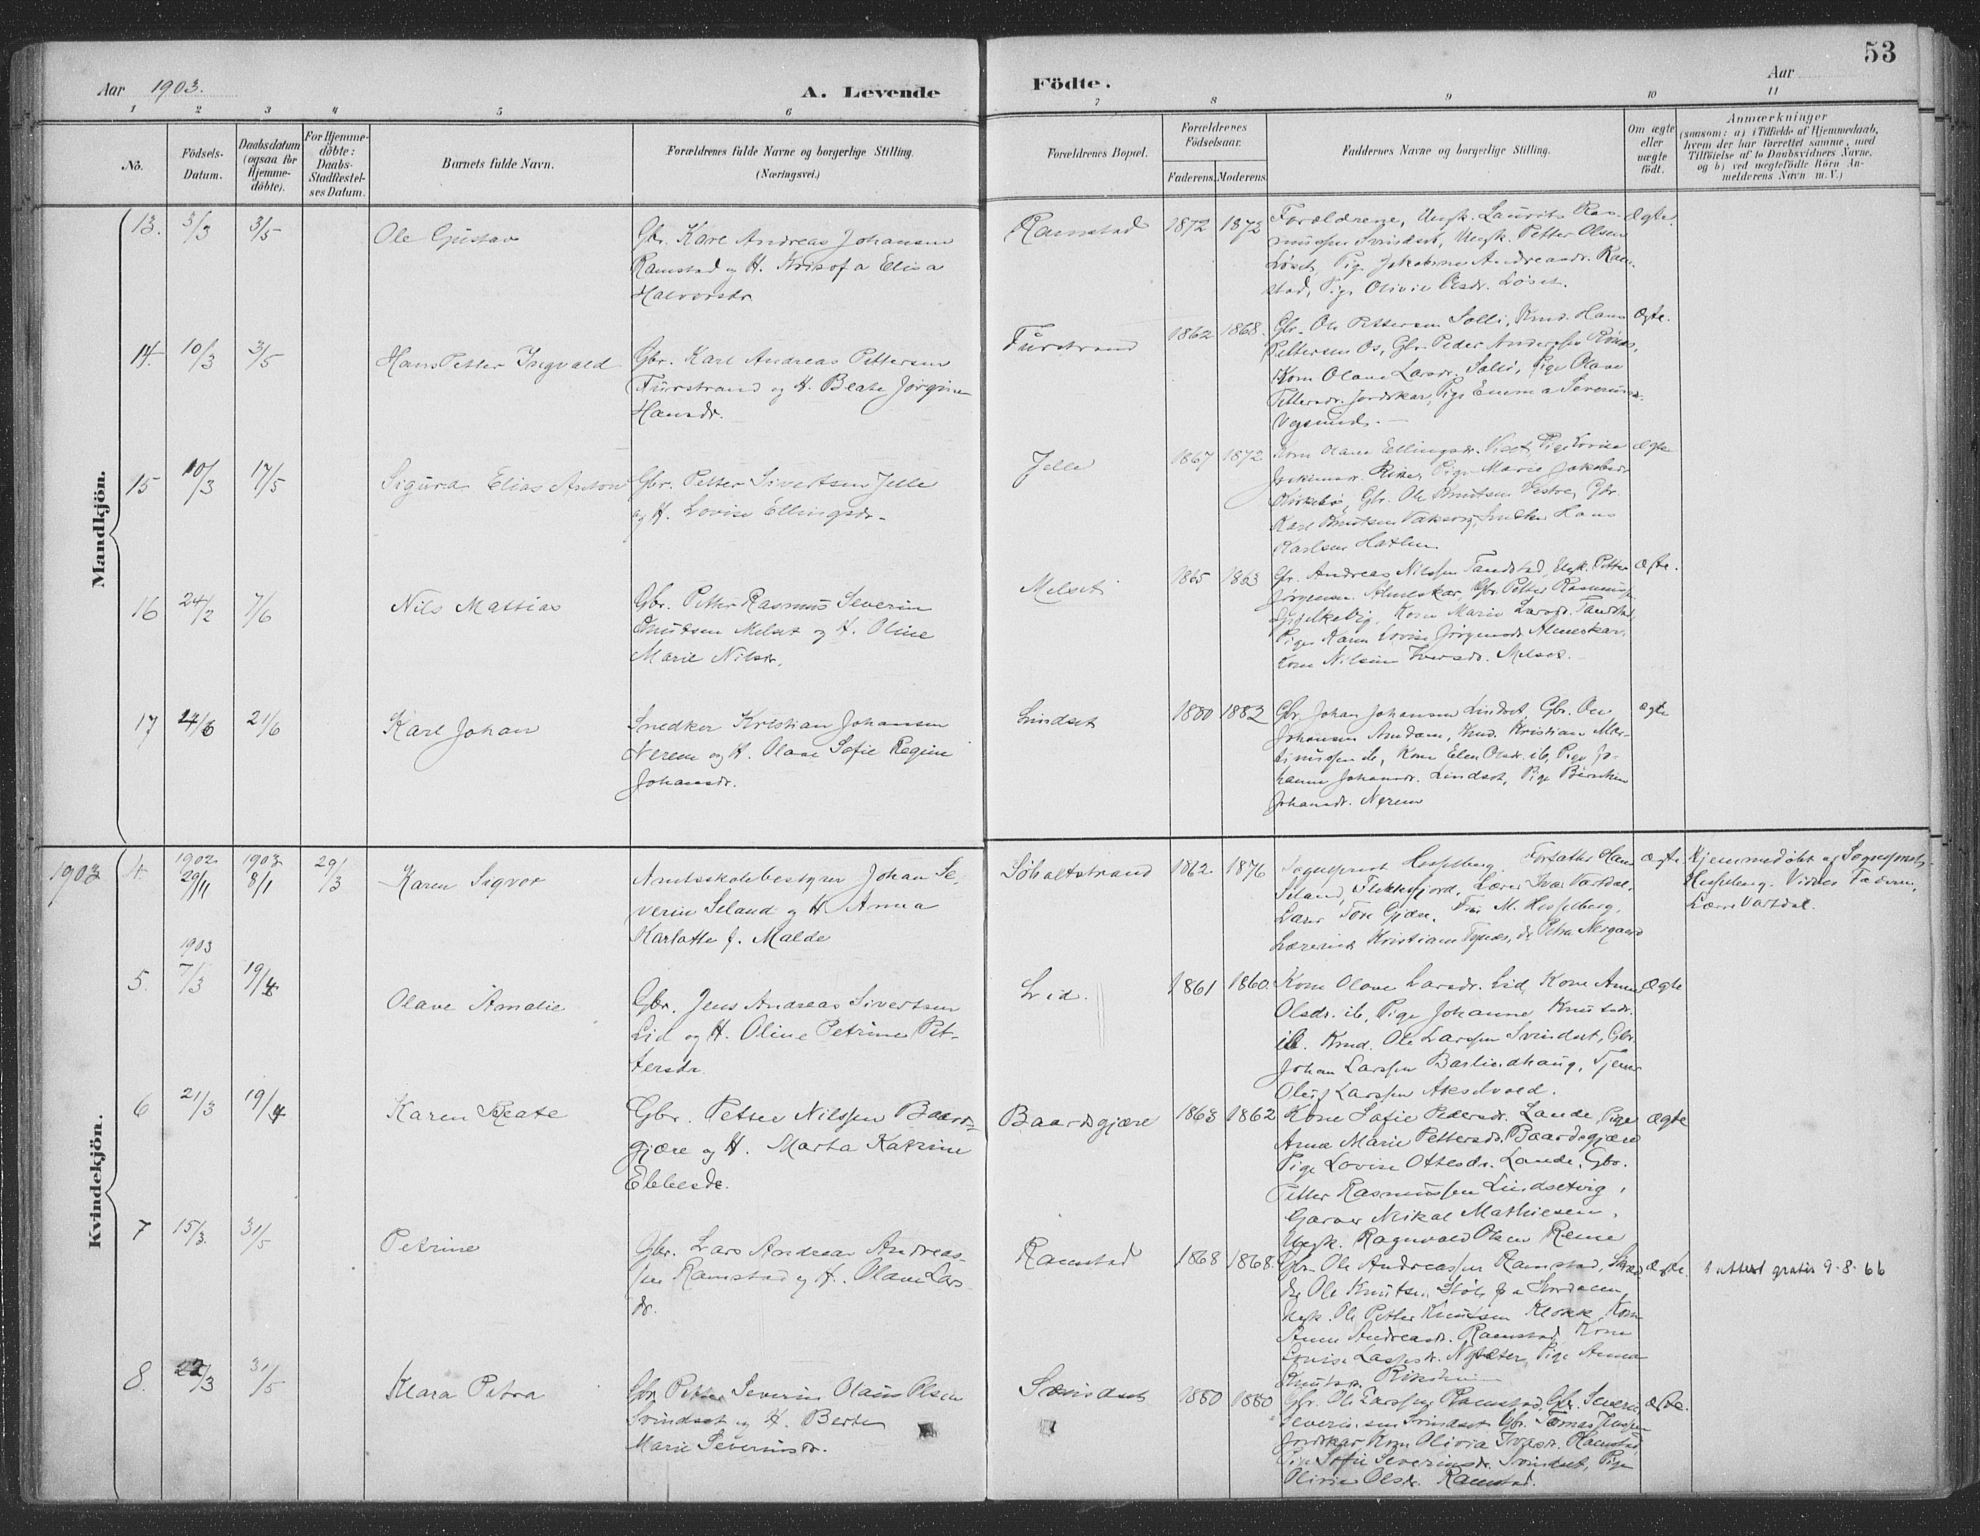 53
Aar 1903.
A. Levende
Födte.
Aar
1 2 3 4 5 6 7 8 9 10 11
No.
Födsels-Datum.
Daabsdatum (ogsaa for Hjemmedöbte).
For Hjemmedöbte: Daabs-Stadfæstelses Datum.
Barnets fulde Navn.
Forældrenes fulde Navne og borgerlige Stilling.
(Næringsvei.)
Forældrenes Bopæl.
Forældrenes Födselsaar.
Faderens. Moderens.
Faddernes Navne og borgerlige Stilling.
Om ægte eller uægte födt.
Anmærkninger
(saasom: a) i Tilfælde af Hjemmedaab, hvem der har forrettet samme, med Tilföielse af to Daabsvidners Navne, og b) ved uægtefödte Börn Anmelderens Navn m. V.)
Mandkjön.
13. 5/3 3/5 Ole Gustav
Gbr. Karl Andreas Johansen
Ramstad og H. Elisa
Halvorsdr.
Ramstad 1872 1872
Forældrene, Ungk. Laurits Ras-
mussen Svindset, Ungk. Petter Olsen
Løset, Pige Jakobine Andreasdr. Ram-
stad, Pige Olivie Olsdr. Løset.
Ægte.
14. 10/3 3/5 Hans Petter Ingvald
Gbr. Karl Andreas Pettersen
Furstrand og H. Beate Jørgine
Hansdr.
Furstrand 1862 1868.
Gbr. Ole Pettersen Solli, Kmd. Hans
Pettersen Os, Gbr. Peder Anderssen
Kone Olave Larsdr. Pige Olave
Pettersdr. Jordskar, Pige Emma Severine
Vegsund.
Ægte.
15 10/3 17/5 Sigurd Elias Anton
Gbr. Petter Sivertsen Jelle
og H. Lovise Ellingsdr.
Jelle 1867 1872
Kone Olave Ellingsdr. Pige Lovise
Pige Marie Jakobsdr.
Gbr. Ole Knutsen Gbr.
Karl Knutsen Hans
Karlsen Hatlen
Ægte
16 24/2 7/6 Nils Mattias
Gbr. Petter Rasmus Severin
Knutsen Melset og H. Oline
Marie Nilsdr.
Melset 1865 1863
Gbr. Andreas Nilssen Tandstad, Ungk. Petter
Jørgensen Almeskar, Gbr. Petter Rasmussen
Kone Marie Larsdr. Tandstad,
Pige Karen Lovise Jørgensdr. Almeskar,
Kone Nilsine Iversdr. Melset.
Ægte.
17 14/6 21/6 Karl Johan
Snedker Kristian Johansen
Nerem og H. Olave Sofie Regine
Johansdr.
Lindset 1880 1882
Gbr. Johan Johansen Lindset, Gbr. Ole
Johansen Amdam, Kmd. Kristian Mar-
tinussen ib, Kone Elen Olsdr. ib, Pige Jo-
hanne Johansdr. Lindset, Pige
Johansdr. Nerem
ægte
Kvindekjön.
1903 4. 1902 29/11 1903 8/1 29/3 Karen Sigvor
Amtsskolebestyrer Johan Se-
verin Seland og H. Anna
Karlotte f. Malde
Søholtstrand 1862. 1876
Sogneprest Hesselberg, Forfatter Hans
Seland, Flekkefjord, Lærer Ivar Vartdal,
Lærer Tore Gjære, Fru M. Hesselberg,
Lærerinde Kristiane Petra Nergaard
ægte
Hjemmedøbt af Sogneprest
Hesselberg. Vidner: Faderen,
Lærer Vartdal.
5. 1903 7/3 19/4 Olave Amalie
Gbr. Jens Andreas Sivertsen
Lid og H. Oline Petrine Pet-
tersdr.
Lid. 1861 1860.
Kone Olave Larsdr. Lid, Kone Anne
Olsdr. ib, Pige Johanne Knutsdr.
ib. Kmd. Ole Larssen Svindset, Gbr.
Johan Larssen Barlindhaug, Tjener
Oluf Larssen Akselvold.
Ægte
6 21/3 19/4 Karen Beate
Gbr. Petter Nilssen Baards-
gjære og H. Marta Katrine
Ebbesdr.
Baardsgjære 1863 1862
Kone Sofie Pedersdr. Lande, Pige
Anne Marie Pettersdr. Baardsgjære
Pige Lovise Ottesdr. Lande, Gbr.
Petter Rasmussen Lindsetvig,
Garver Mikal Mathiesen,
Ungk. Ragnvald Olsen Reme
ægte
7 15/3. 31/5 Petrine
Gbr. Lars Andreas Andreas-
sen Ramstad og H. Olave Lars-
dr.
Ramstad 1868 1868.
Gbr. Ole Andreassen Ramstad,
Ole Knutsen
Ungk. Ole Petter Knutsen Klokk, Kone
Anne Andreasdr. Ramstad, Kone
Lovise Lassesdr. Pige Anna
Knutsdr.
ægte.
1 attest gratis 9-8-66
8. 22/3 31/5 Klara Petra
Gbr. Petter Severin Olaus Olsen
Svindset og H. Berte
Marie Severinsdr.
Svindset 1880 1880
Gbr. Ole Larssen Ramstad, Gbr. Severin
Severinsen Svindset, Gbr. Tomas Jenssen
Jordskar, Kone Olivia Ramstad,
Pige Sofie Severinsdr. Svindset, Pige
Olivie Olsdr. Ramstad.
ægte.